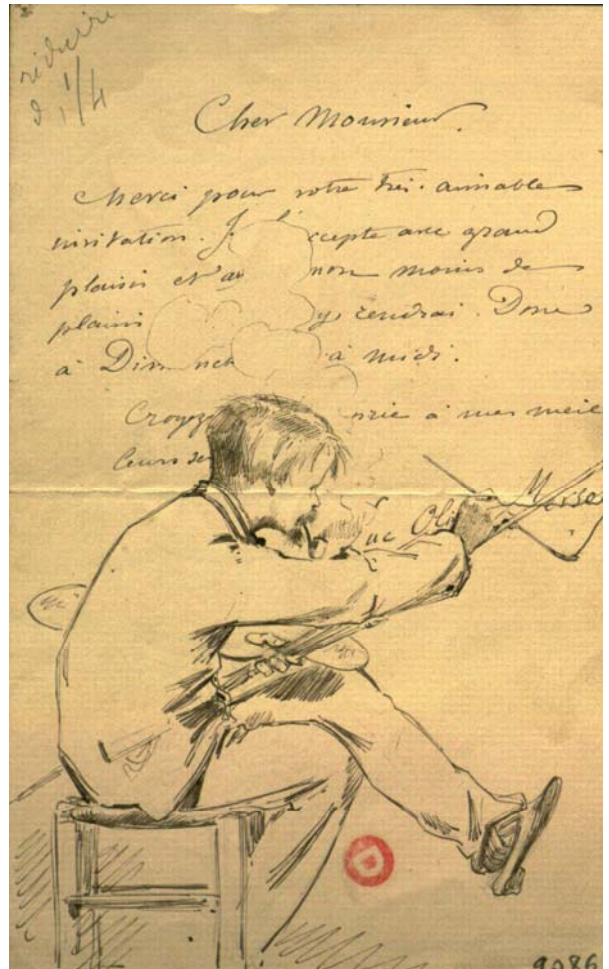 réduire
à 1/4
Cher Monsieur.
Merci pour votre très aimable
invitation. J l' ccepte avec grand
plaisir et av non moins de
plaisir y rendrai. Donc
à Dim nch à midi.
Croyez rie à mes meil
leurs se
Luc Oli Merson
9086